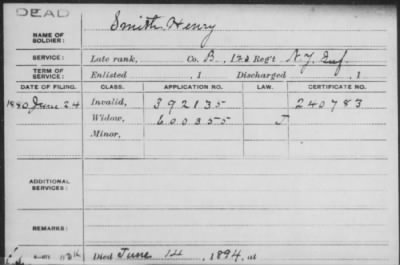 DEAD
NAME OF SOLDIER: Smith, Henry
SERVICE: Late rank, Co. B, Reg't N.Y. Inf.
TERM OF SERVICE: Enlisted , 1 Discharged , 1
DATE OF FILING. CLASS. APPLICATION NO. LAW. CERTIFICATE NO.
1880 June 24 Invalid, 392135 240783
Widow, 600355 J
Minor,
ADDITIONAL SERVICES:
REMARKS:
Died June 14, 1894, at